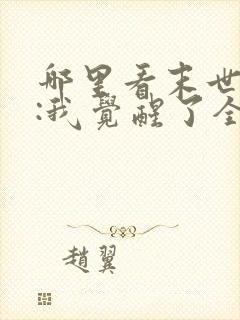 哪里看末世
:我覺醒了全
趙翼